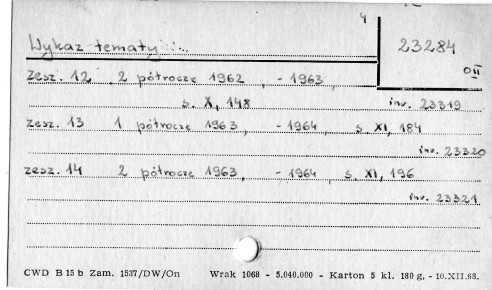 4
Wykaz tematy
23284
OII
zesz. 12 2 półrocze 1962, - 1963,
s. X, 148 inw. 23319
zesz. 13 1 półrocze 1963, - 1964, s. XI, 184
inw. 23320
zesz. 14 2 półrocze 1963, - 1964, s. XI, 196
inw. 23321
CWD B 15 b Zam. 1537/DW/On Wrak 1068 - 5.040.000 - Karton 5 kl. 180 g, - 10.XII.68.